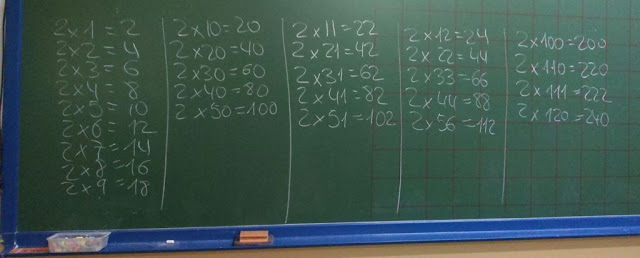 2x1=2
2x2=4
2x3=6
2x4=8
2x5=10
2x6=12
2x7=14
2x8=16
2x9=18
2x10=20
2x20=40
2x30=60
2x40=80
2x50=100
2x11=22
2x21=42
2x31=62
2x41=82
2x51=102
2x12=24
2x22=44
2x33=66
2x44=88
2x56=112
2x100=200
2x110=220
2x111=222
2x120=240